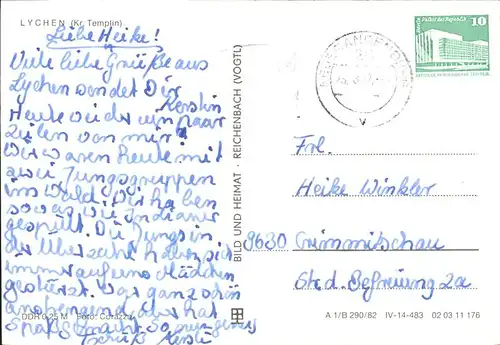 LYCHEN (Kr. Templin)
Liebe Heike!
Viele liebe Grüße aus
Lychen sendet Dir
Kerstin
Heute wieder ein paar
Zeilen von mir.
Wir waren heute mit
zwei Jungsgruppen
im Wald. Wir haben
sowas wie Indianer
gespielt. Die Jungs in
der Überzahl haben sich
immer auf uns Mädchen
gestürzt. War ganz schön
anstrengend, aber hat
Spaß gemacht. So nun genug
Gruß Kersti
DDR 0,25 M Foto: Corazza
BILD UND HEIMAT · REICHENBACH (VOGTL)
Berlin Palast der Republik
10
DEUTSCHE DEMOKRATISCHE REPUBLIK
Frl.
Heike Winkler
9630 Crimmitschau
Std. Befreiung 2a
A 1/B 290/82 IV-14-483 02 03 11 176